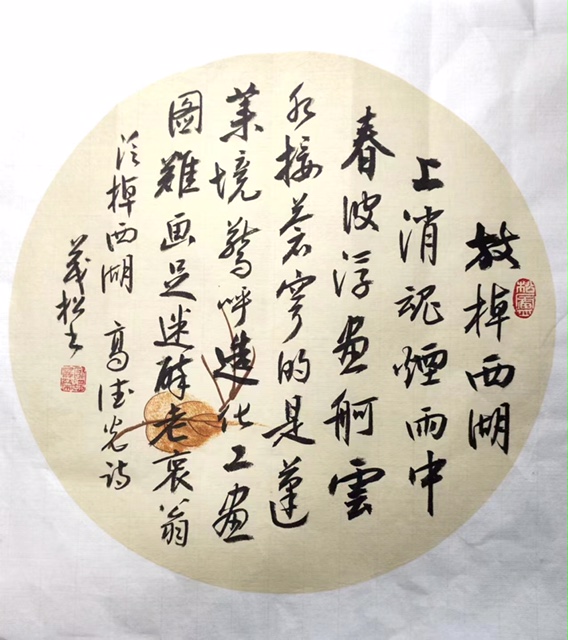 放棹西湖
上消魂煙雨中
春波浮畫舸雲
水接苍穹的是蓬
莱境驚呼造化工畫
圖難画足迷醉老衰翁
泛棹西湖 高德光诗
松书